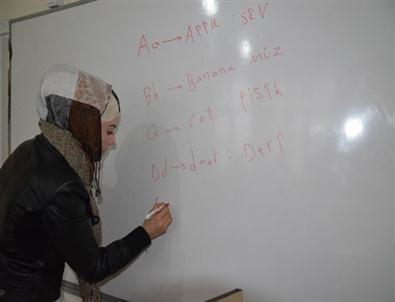 Aa → Apple : SÊV
Bb → Banana : MÛZ
Cc → Cat : PISÎK
Dd → door : Derî